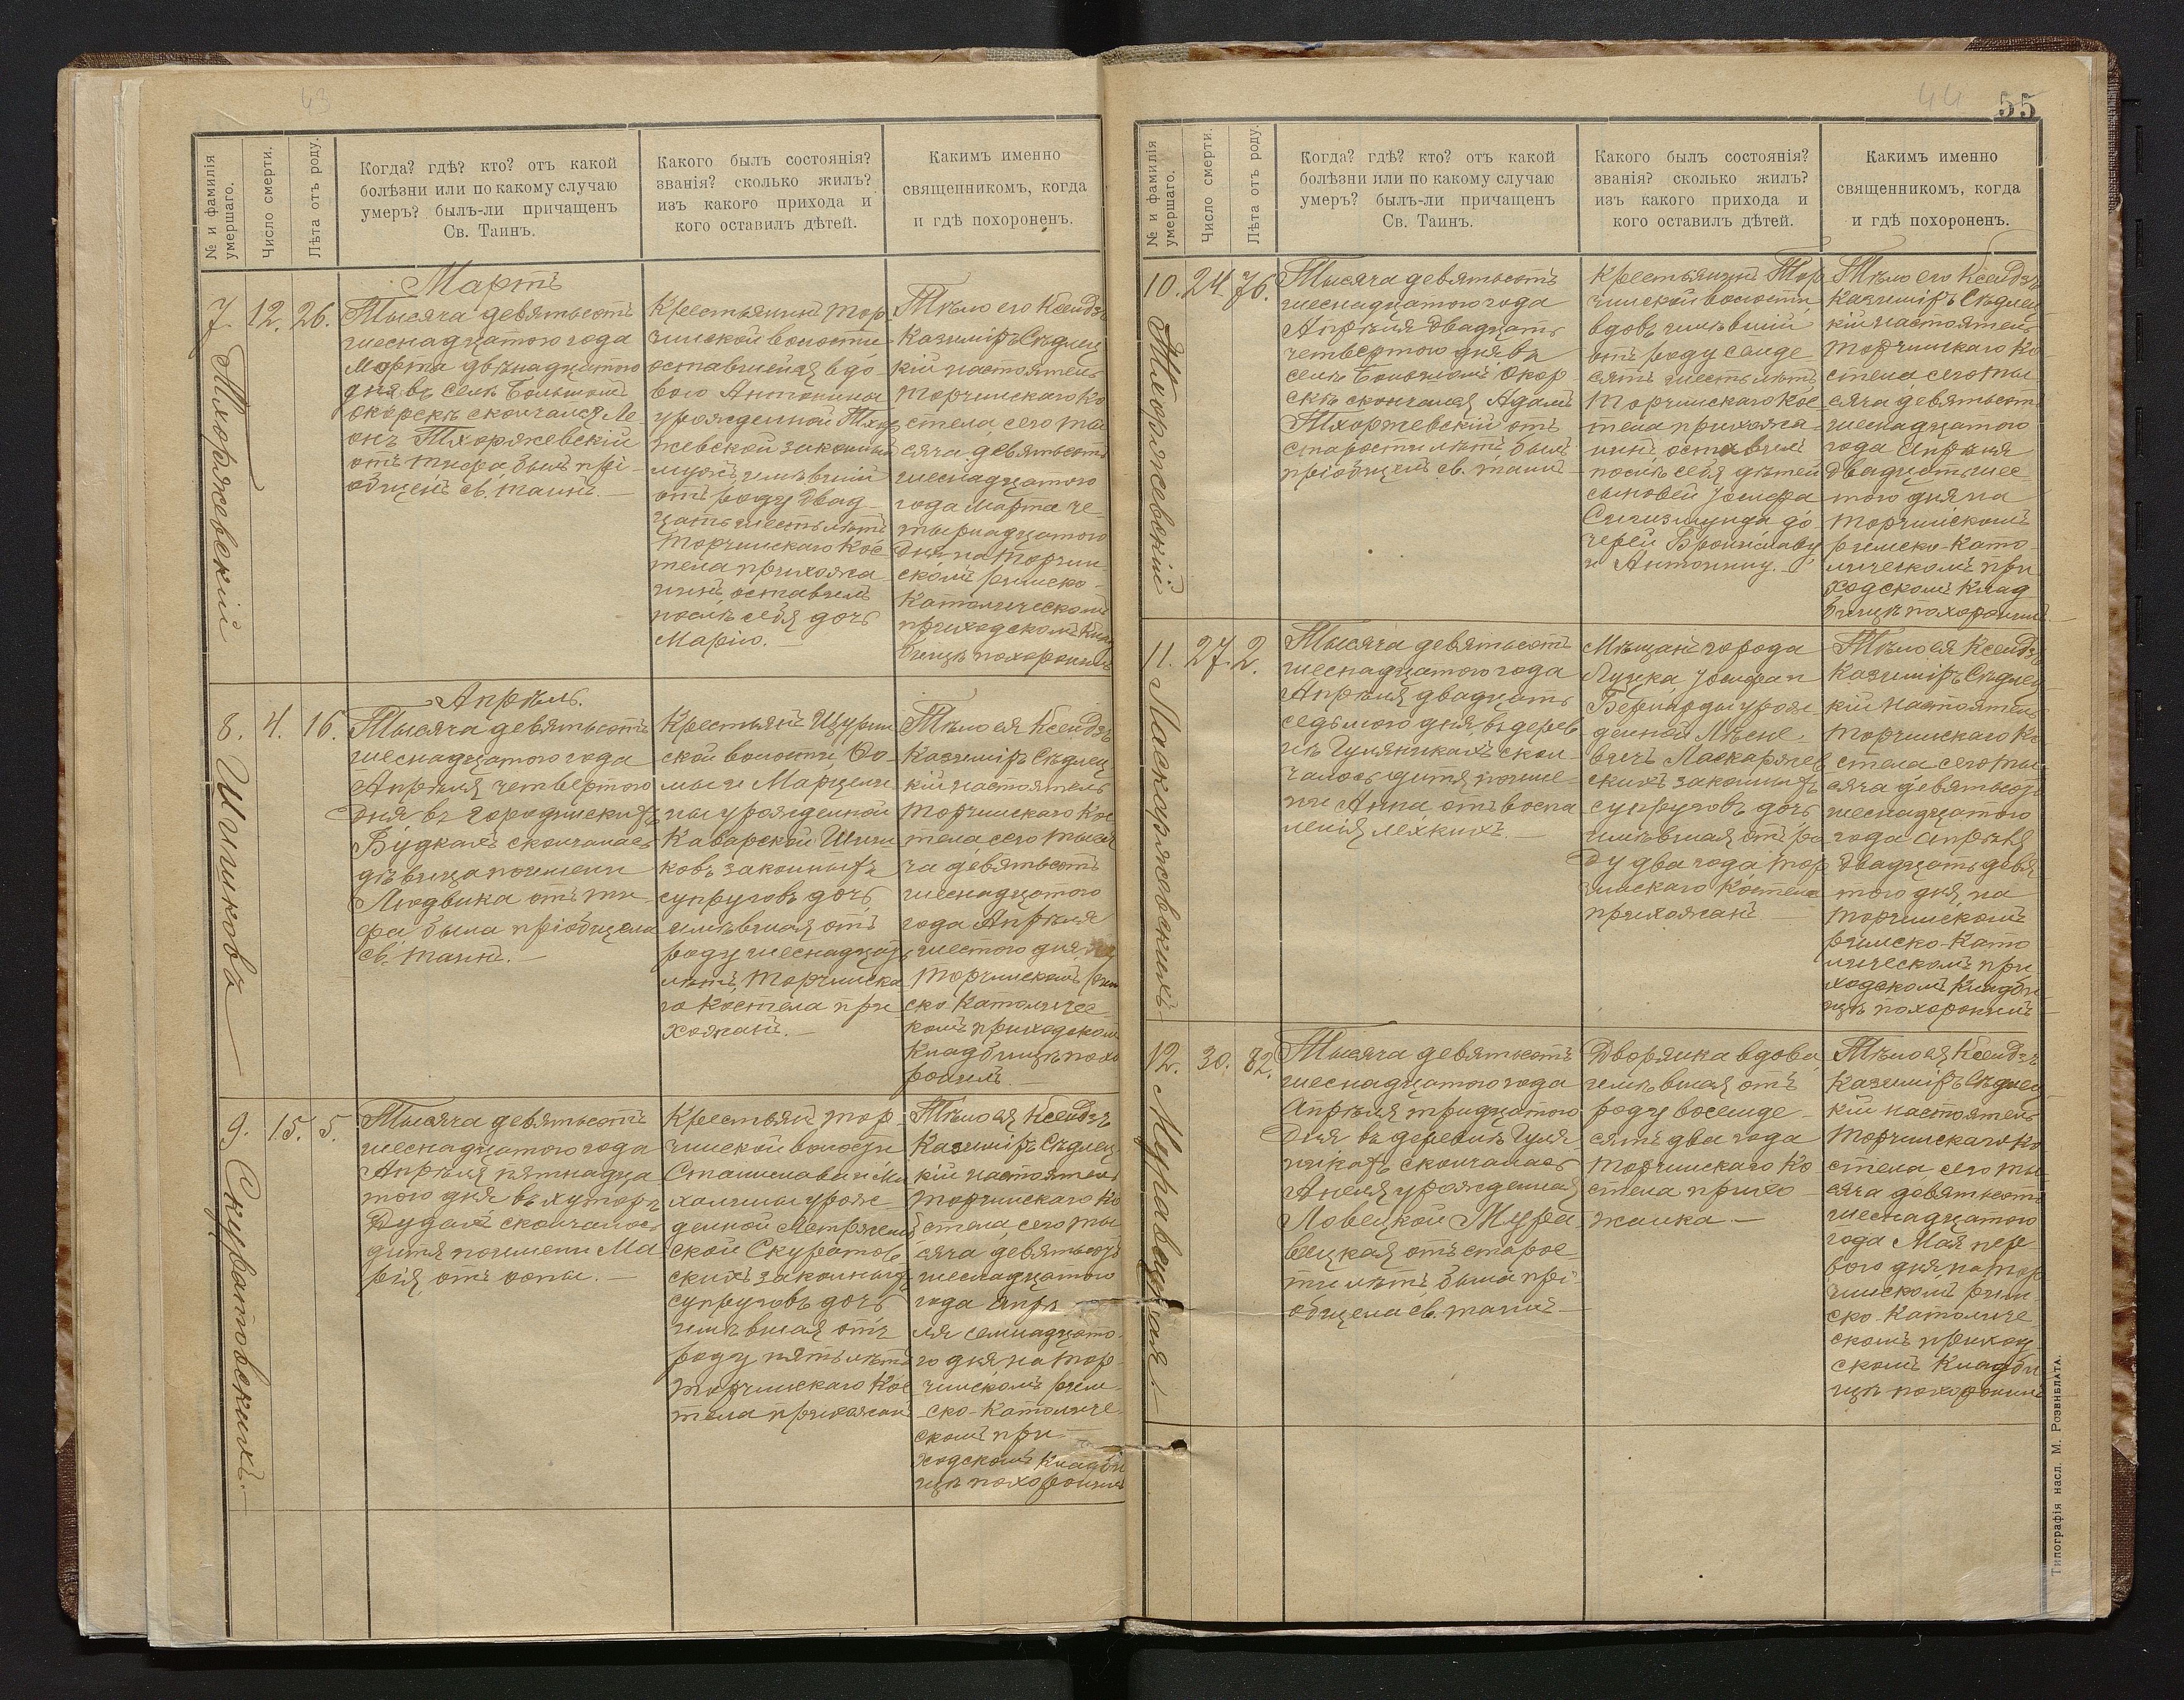 43
№ и фамилія умершаго.
Число смерти.
Лѣта отъ роду.
Когда? гдѣ? кто? отъ какой
болѣзни или по какому случаю
умеръ? былъ-ли причащенъ
Св. Таинъ.
Какого былъ состоянія?
званія? сколько жилъ?
изъ какого прихода и
кого оставилъ дѣтей.
Какимъ именно
священникомъ, когда
и гдѣ похороненъ.
Мартъ
7. Тхоржевскій
12.
26.
Тысяча девятьсотъ
шеснадцатого года
Марта двѣнадцатого
дня въ селѣ Большомъ
Окорскѣ скончался Ле-
онъ Тхоржевскій
отъ тифа, былъ прі-
общенъ св. таинъ.—
Крестьянинъ Тор-
чинской волости
оставшейся вдо-
вою Антонины
урожденной Тхор
жевской законный
мужъ, имѣвшій
отъ роду двад-
цать шесть лѣтъ
Торчинскаго Кос
тела прихожа-
нинъ, оставилъ
послѣ себя дочь
Марію.—
Тѣло его Ксендзъ
Казимиръ Сѣдлец
кій настоятель
Торчинскаго Ко
стела, сего ты
сяча девятьсотъ
шеснадцатого
года Марта че-
тырнадцатого
дня на Торчин
скомъ римско-
Католическомъ
приходскомъ Клад
бищѣ похоронилъ
Апрѣль.
8. Шишкова
4.
16.
Тысяча девятьсотъ
шеснадцатого года
Апрѣля четвертого
дня въ Городискихъ
Будкахъ скончалась
дѣвица по имени
Людвика отъ ти-
фа была пріобщена
св. таинъ.—
Крестьянъ Щурин
ской волости,
мы и Марцели-
ны урожденной
Каварской Шиш
ковъ законныхъ
супруговъ дочь
имѣвшая отъ
роду шеснадцать
лѣтъ, Торчинска
го Костела при
хожанъ.—
Тѣло ея Ксендзъ
Казимиръ Сѣдлец
кій настоятель
Торчинскаго Кос
тела сего тыся
ча девятьсотъ
шеснадцатого
года Апрѣля
шестого дня на
Торчинскомъ рим
ско-Католичес
комъ приходскомъ
Кладбищѣ похо
ронилъ.—
9. Скуратовскихъ.—
15.
5.
Тысяча девятьсотъ
шеснадцатого года
Апрѣля пятнадца
того дня въ хуторѣ
Дудахъ скончалось
дитя по имени Ма-
рія, отъ оспы.—
Крестьянъ Тор-
чинской волости
Станислава и Ми
халины урож-
денной
ской Скуратов
скихъ законныхъ
супруговъ дочь
имѣвшая отъ
роду пять лѣтъ
Торчинскаго Кос
тела прихожанъ
Тѣло ея Ксендзъ
Казимиръ Сѣдлец
кій настоятель
Торчинскаго Ко
стела, сего ты
сяча девятьсотъ
шеснадцатого
года Апрѣ
ля семнадцато-
го дня на Тор-
чинскомъ рим-
ско-Католиче-
скомъ при-
ходскомъ Кладби
щѣ похоронилъ
44
55
№ и фамилія умершаго.
Число смерти.
Лѣта отъ роду.
Когда? гдѣ? кто? отъ какой
болѣзни или по какому случаю
умеръ? былъ-ли причащенъ
Св. Таинъ.
Какого былъ состоянія?
званія? сколько жилъ?
изъ какого прихода и
кого оставилъ дѣтей.
Какимъ именно
священникомъ, когда
и гдѣ похороненъ.
10. Тхоржевскій
24.
76.
Тысяча девятьсотъ
шеснадцатого года
Апрѣля двадцать
четвертого дня въ
селѣ Большомъ Окор-
скѣ скончался Адамъ
Тхоржевскій отъ
старости лѣтъ, былъ
пріобщенъ св. таинъ—
Крестьянинъ Тор
чинской волости,
вдовъ имѣвшій
отъ роду семде-
сятъ шесть лѣтъ
Торчинскаго Кос
тела прихожа-
нинъ, оставилъ
послѣ себя дѣтей
сыновей Іосифа
Сигизмунда до-
черей Брониславу
и Антонину.—
Тѣло его Ксендзъ
Казимиръ Сѣдлец
кій настоятель
Торчинскаго Ко
стела сего ты
сяча девятьсотъ
шеснадцатого
года Апрѣля
двадцать шес-
того дня на
Торчинскомъ
римско-Като-
лическомъ при
ходскомъ Клад
бищѣ похоронилъ
11. Ласкаржевскихъ
27.
2.
Тысяча девятьсотъ
шеснадцатого года
Апрѣля двадцать
седьмого дня, въ дерев
нѣ Гуляникахъ скон-
чалось дитя по име-
ни Анна, отъ воспа
ленія лехкихъ.—
Мѣщанъ города
Луцка, Іосифа и
Бернарды урож-
денной
вичъ Ласкаржев
скихъ законныхъ
супруговъ дочь
имѣвшая отъ ро
ду два года Тор
чинскаго Костела
прихожанъ
Тѣло ея Ксендзъ
Казимиръ Сѣдлец
кій настоятель
Торчинскаго Ко
стела сего ты-
сяча девятьсотъ
шеснадцатого
года Апрѣля
двадцать девя
того дня, на
Торчинскомъ
римско-Като
лическомъ при
ходскомъ Кладби
щѣ похоронилъ
12. Муравицкая.—
30.
82.
Тысяча девятьсотъ
шеснадцатого года
Апрѣля тридцатого
дня въ деревнѣ Гуля
никахъ скончалась
Анеля урожденная
Ловецкой Мура
вицкая отъ старос
ти лѣтъ, была прі-
общена св. таинъ—
Дворянка вдова,
имѣвшая отъ
роду восемде-
сятъ два года
Торчинскаго Ко
стела прихо-
жанка.—
Тѣло ея Ксендзъ
Казимиръ Сѣдлец
кій настоятель
Торчинскаго Ко
стела сего ты-
сяча девятьсотъ
шеснадцатого
года Мая пер-
вого дня, на Тор
чинскомъ рим-
ско-Католиче
скомъ приход
скомъ Кладби
щѣ похоронилъ
Типографія насл. М. Розенблата.